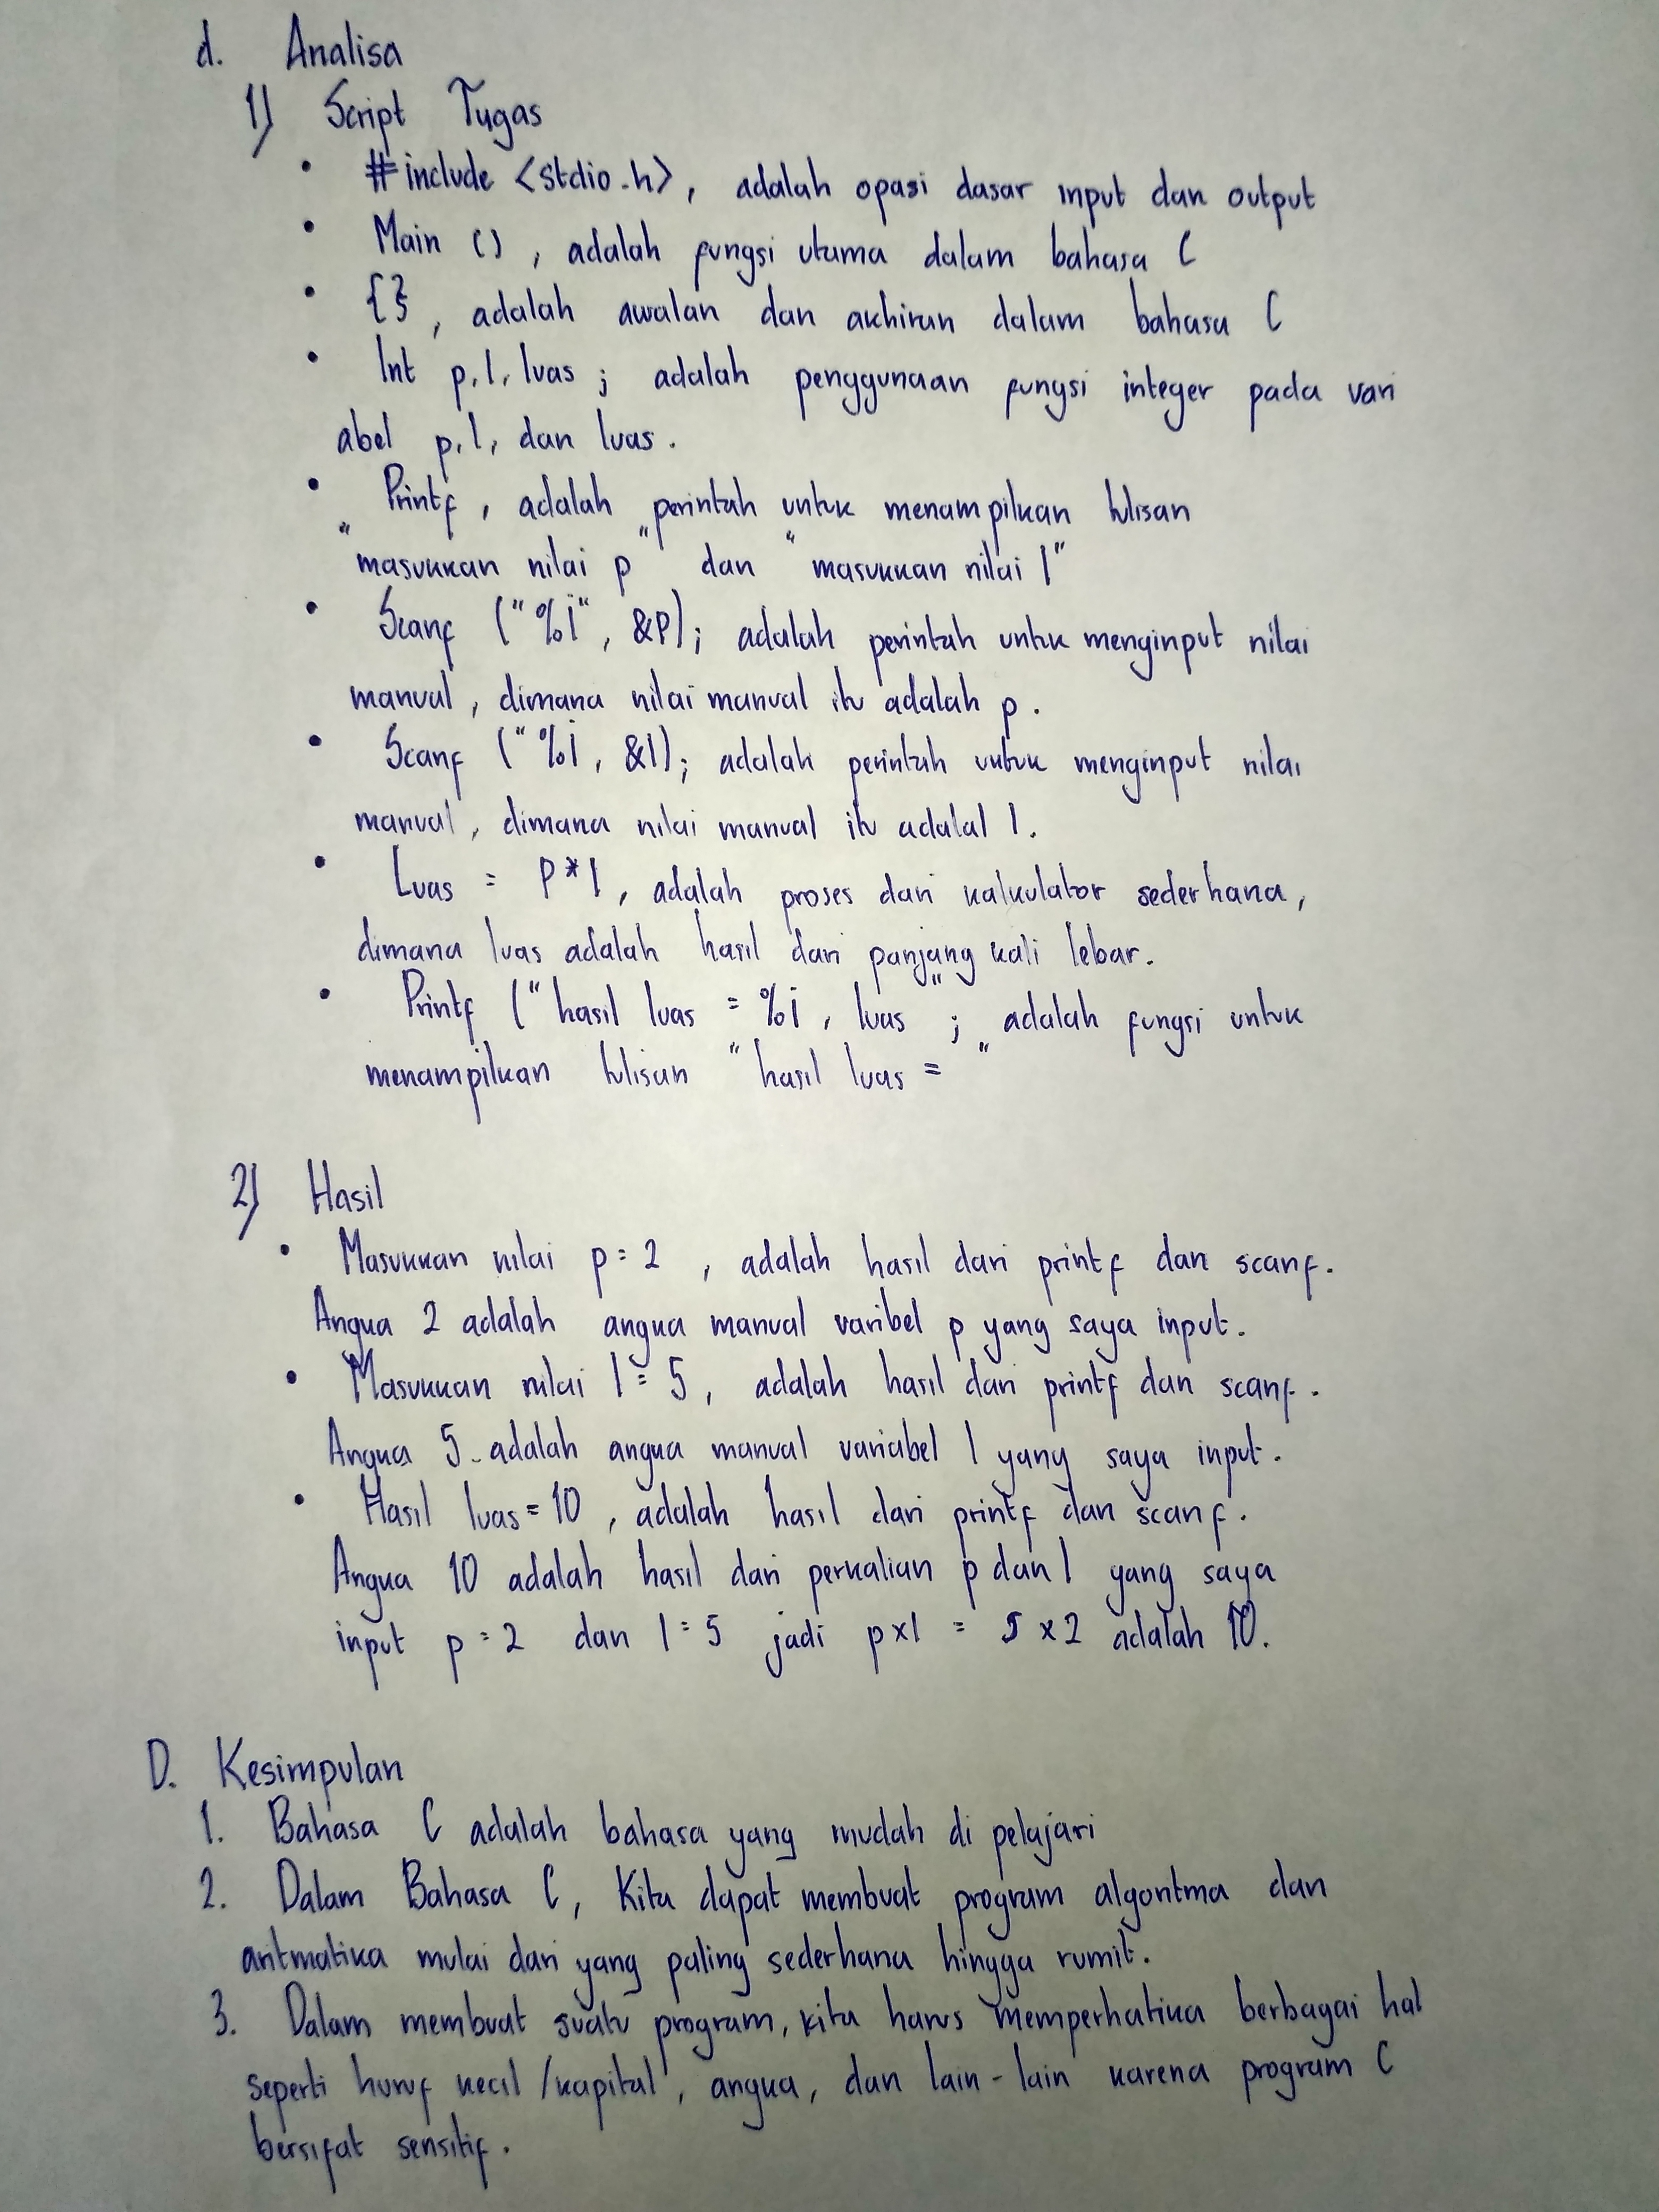 d. Analisa
1) Script Tugas
• #include <stdio.h>, adalah opasi dasar input dan output
• Main (), adalah fungsi utama dalam bahasa C
• {}, adalah awalan dan akhiran dalam bahasa C
• Int p,l, luas ; adalah penggunaan fungsi integer pada vari
abel p,l, dan luas.
• Printf, adalah perintah untuk menampilkan tulisan
"masukkan nilai p" dan "masukkan nilai l"
• Scanf ("%i", &P); adalah perintah untuk menginput nilai
manual, dimana nilai manual itu adalah p.
• Scanf ("%i, &l); adalah perintah untuk menginput nilai
manual, dimana nilai manual itu adalal l.
• Luas = P*l, adalah proses dari kalkulator sederhana,
dimana luas adalah hasil dari panjang kali lebar.
• Printf ("hasil luas = %i, luas"; adalah fungsi untuk
menampilkan tulisan "hasil luas = "
2) Hasil
• Masukkan nilai p = 2, adalah hasil dari printf dan scanf.
Angka 2 adalah angka manual varibel p yang saya input.
• Masukkan nilai l = 5, adalah hasil dari printf dan scanf.
Angka 5 adalah angka manual variabel l yang saya input.
• Hasil luas = 10, adalah hasil dari printf dan scanf.
Angka 10 adalah hasil dari perkalian p dan l yang saya
input p = 2 dan l = 5 jadi p x l = 5 x 2 adalah 10.
D. Kesimpulan
1. Bahasa C adalah bahasa yang mudah di pelajari
2. Dalam Bahasa C, Kita dapat membuat program algoritma dan
aritmatika mulai dari yang paling sederhana hingga rumit.
3. Dalam membuat suatu program, kita harus memperhatika berbagai hal
seperti huruf kecil/kapital, angka, dan lain-lain karena program C
bersifat sensitif.